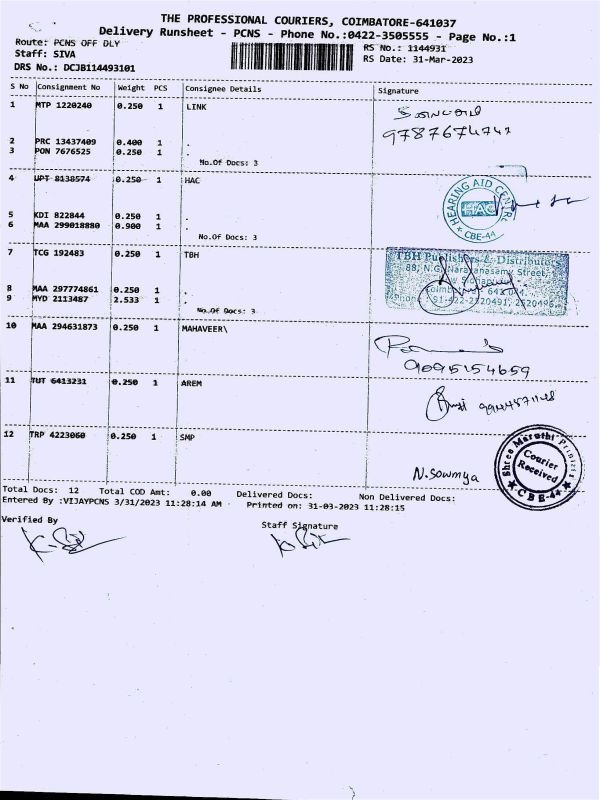 THE PROFESSIONAL COURIERS, COIMBATORE-641037
Delivery Runsheet - PCNS - Phone No.:0422-3505555 - Page No.:1
Route: PCNS OFF DLY
Staff: SIVA
DRS No.: DCJB114493101
RS No.: 1144931
RS Date: 31-Mar-2023
S No Consignment No Weight PCS Consignee Details Signature
1 MTP 1220240 0.250 1 LINK
9787674747
2 PRC 13437409 0.400 1 .
3 PON 7676525 0.250 1 .
No.Of Docs: 3
4 UPT 8138574 0.250 1 HAC
HEARING AID CENTRE
HAC
* CBE-44
5 KDI 822844 0.250 1 .
6 MAA 299018880 0.900 1 .
No.Of Docs: 3
7 TCG 192483 0.250 1 TBH
TBH Publishers & Distributors
88, N.G. Narayanasamy Street,
8 MAA 297774861 0.250 1 .
9 MYD 2113487 2.533 1 .
No.Of Docs: 3
10 MAA 294631873 0.250 1 MAHAVEER\
9095154659
11 TUT 6413231 0.250 1 AREM
12 TRP 4223060 0.250 1 SMP
N.Sowmya
Shree Maruthi Printers
Courier
Received
* CBE-44 *
Total Docs: 12 Total COD Amt: 0.00 Delivered Docs: Non Delivered Docs:
Entered By :VIJAYPCNS 3/31/2023 11:28:14 AM Printed on: 31-03-2023 11:28:15
Verified By
Staff Signature